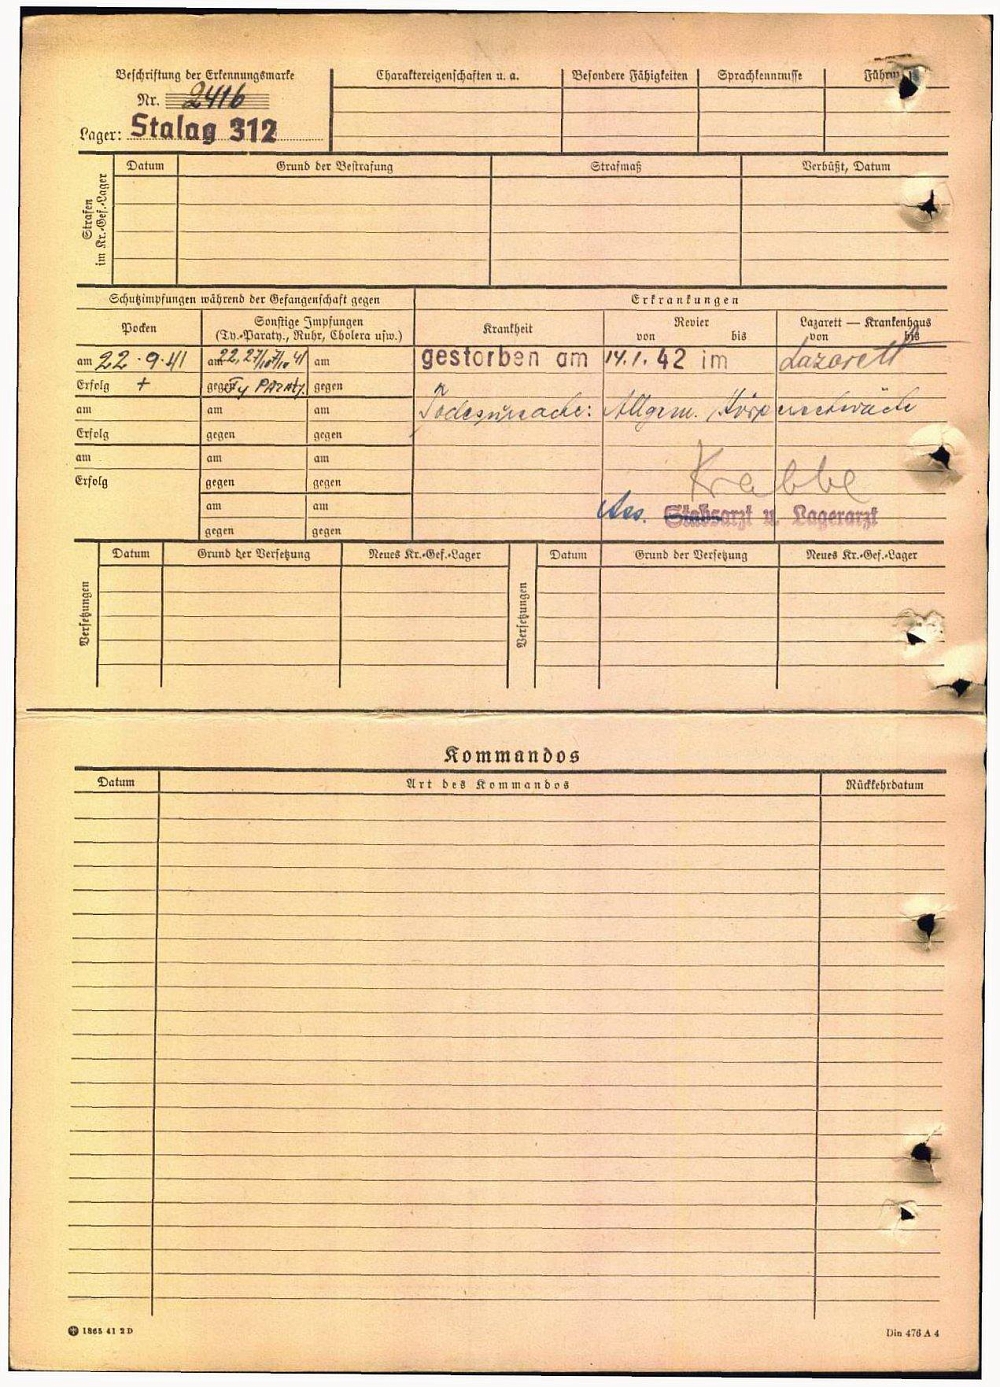 Beschriftung der Erkennungsmarke
Nr. 2416
Lager: Stalag 312
Charaktereigenschaften u. a.
Besondere Fähigkeiten
Sprachkenntnisse
Strafen im Kr.-Gef.-Lager
Datum
Grund der Bestrafung
Strafmaß
Verbüßt, Datum
Schutzimpfungen während der Gefangenschaft gegen
Erkrankungen
Pocken
Sonstige Impfungen
(Ty.-Paraty., Ruhr, Cholera usw.)
Krankheit
Revier
von bis
Lazarett — Krankenhaus
von bis
am 22.9.41 am am
gestorben am 14.1.42 im Lazarett
Erfolg + gegen Ty Paraty. gegen
am am am
Todesursache: Allgem. Körperschwäche
Erfolg gegen gegen
am am am
Erfolg gegen gegen
Krabbe
am am
Ass. Stabsarzt u. Lagerarzt
gegen gegen
Versetzungen
Datum
Grund der Versetzung
Neues Kr.-Gef.-Lager
Versetzungen
Datum
Grund der Versetzung
Neues Kr.-Gef.-Lager
Kommandos
Datum
Art des Kommandos
Rückkehrdatum
1865 41 2 D
Din 476 A 4